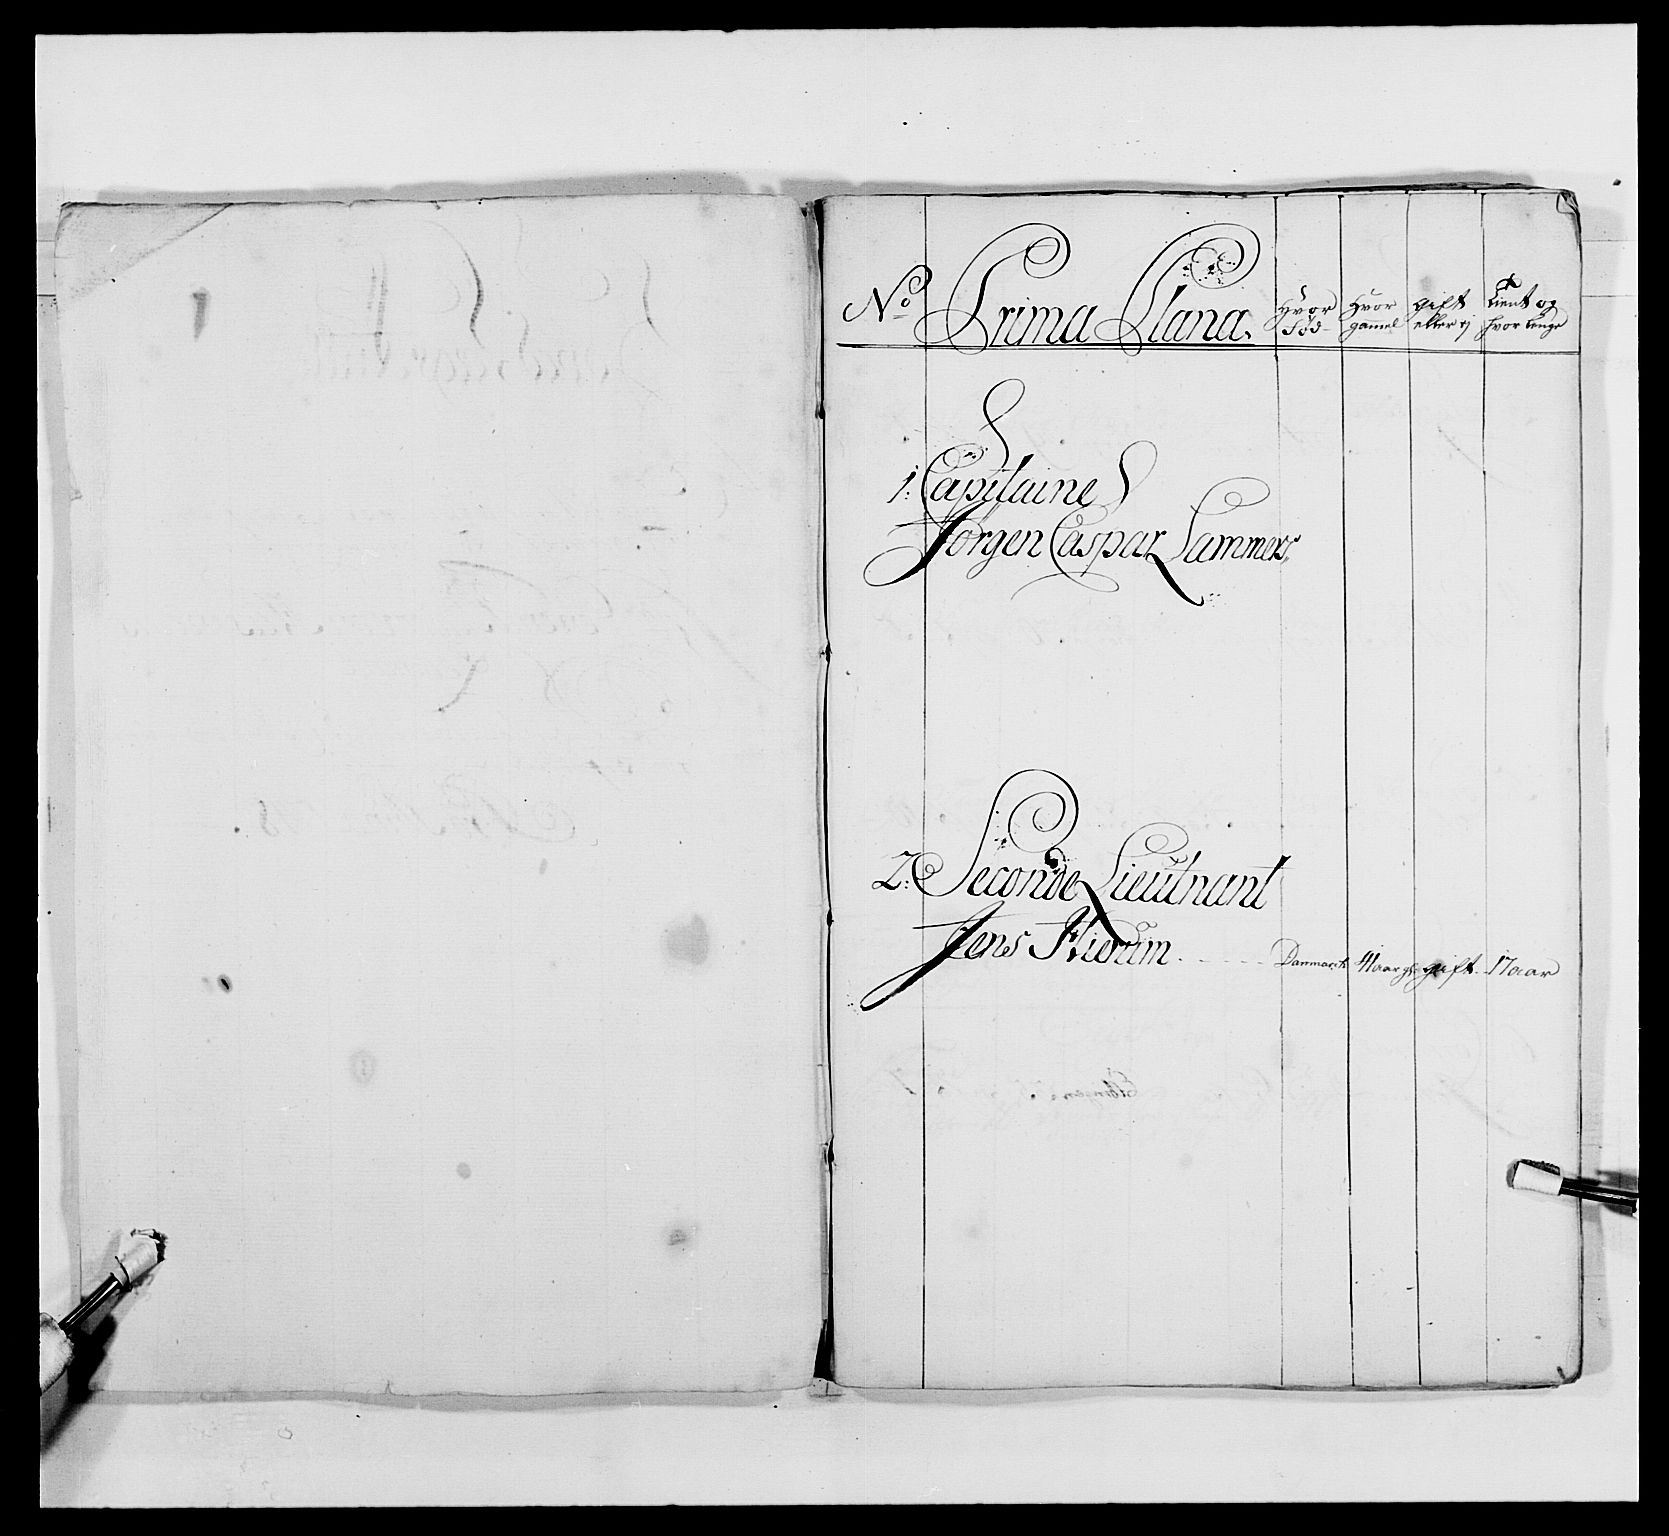 No Prima Plana. Hvor Fød Hvor gamel gift eller ej tient og hvor lenge
1: Capitaine
Jørgen Caspar Lammers
2: Seconde Lieutnant
Jens Kierum Danmarck 41 aar gl gift 17 aar